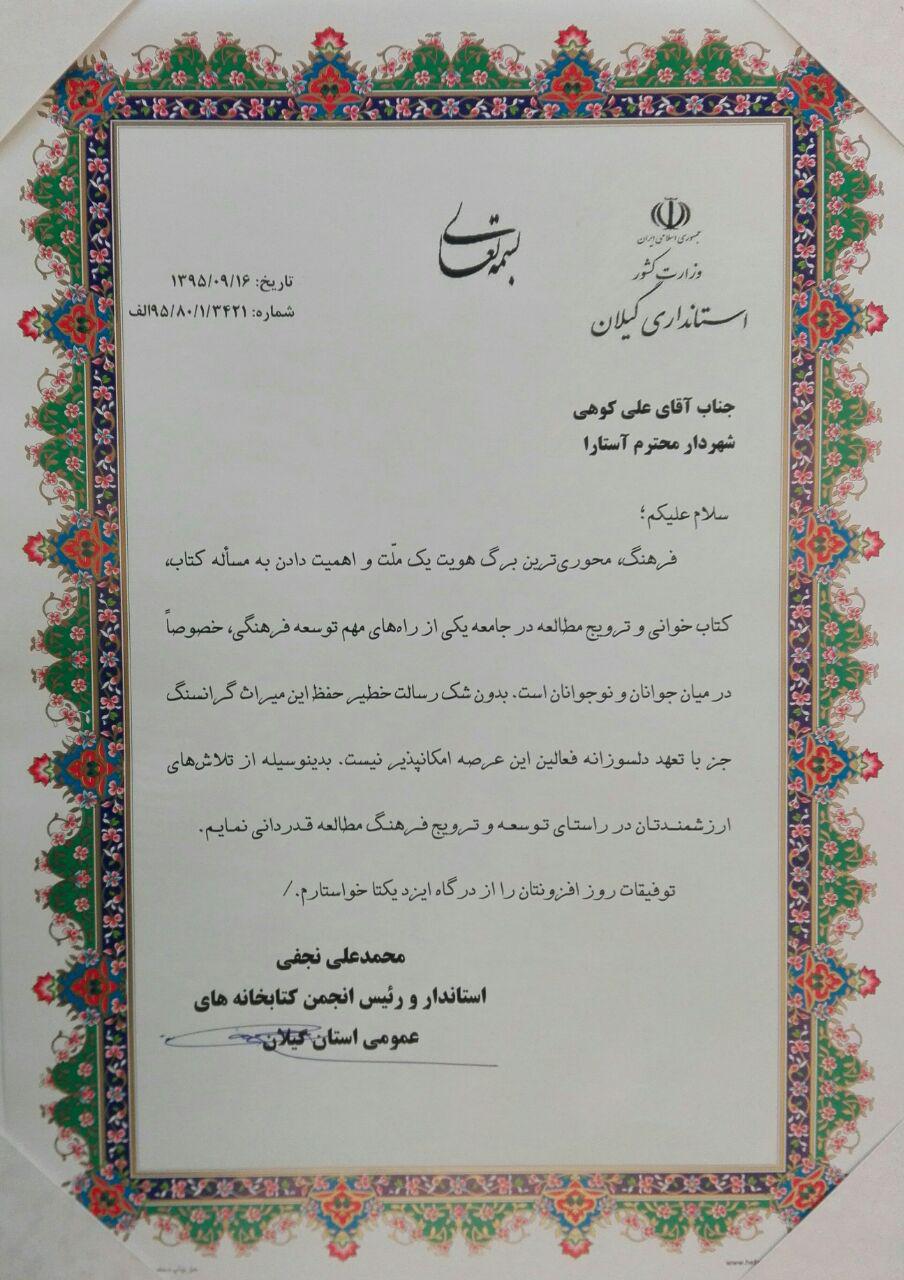 بسمه تعالی
جمهوری اسلامی ایران
وزارت کشور
استانداری گیلان
تاریخ: ۱۳۹۵/۰۹/۱۶
شماره: ۹۵/۸۰/۱/۳۴۲۱الف
جناب آقای علی کوهی
شهردار محترم آستارا
سلام علیکم؛
فرهنگ، محوری‌ترین برگ هویت یک ملّت و اهمیت دادن به مسأله کتاب،
کتاب خوانی و ترویج مطالعه در جامعه یکی از راه‌های مهم توسعه فرهنگی، خصوصاً
در میان جوانان و نوجوانان است. بدون شک رسالت خطیر حفظ این میراث گرانسنگ
جز با تعهد دلسوزانه فعالین این عرصه امکانپذیر نیست. بدینوسیله از تلاش‌های
ارزشمندتان در راستای توسعه و ترویج فرهنگ مطالعه قدردانی نمایم.
توفیقات روز افزونتان را از درگاه ایزد یکتا خواستارم./
محمدعلی نجفی
استاندار و رئیس انجمن کتابخانه های
عمومی استان گیلان